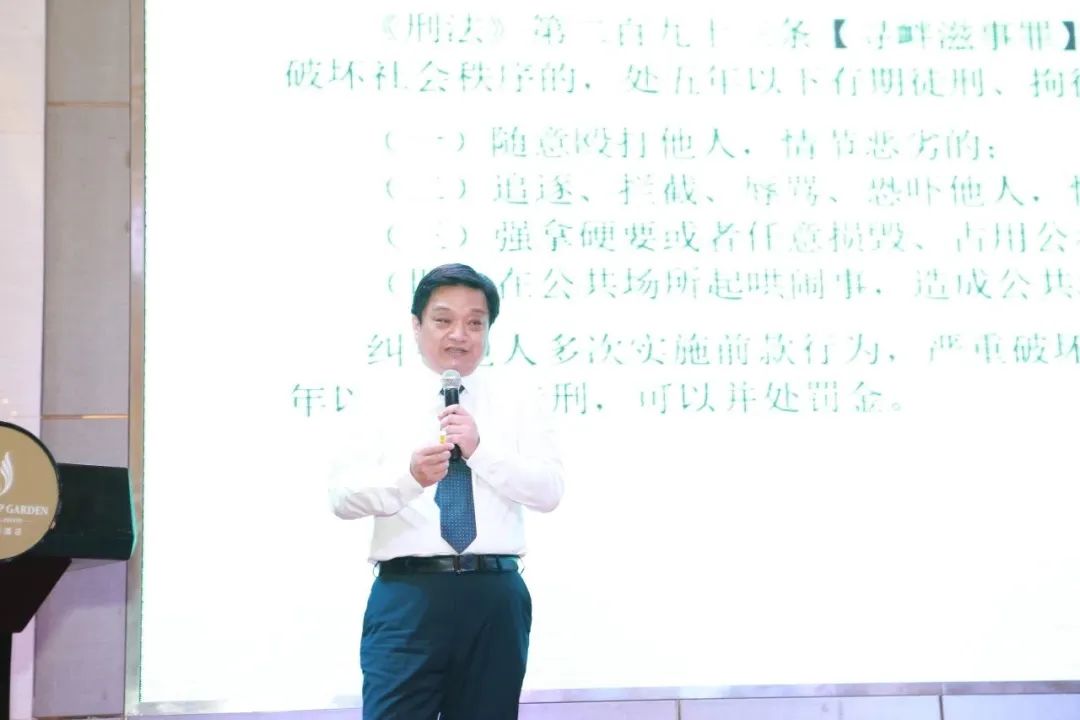 《刑法》第二百九十三条【寻衅滋事罪】
破坏社会秩序的，处五年以下有期徒刑、拘
（一）随意殴打他人，情节恶劣的；
（二）追逐、拦截、辱骂、恐吓他人，
（三）强拿硬要或者任意损毁、占用公
在公共场所起哄闹事，造成公共
纠 他人多次实施前款行为，严重破坏
年以 刑，可以并处罚金。
GARDEN